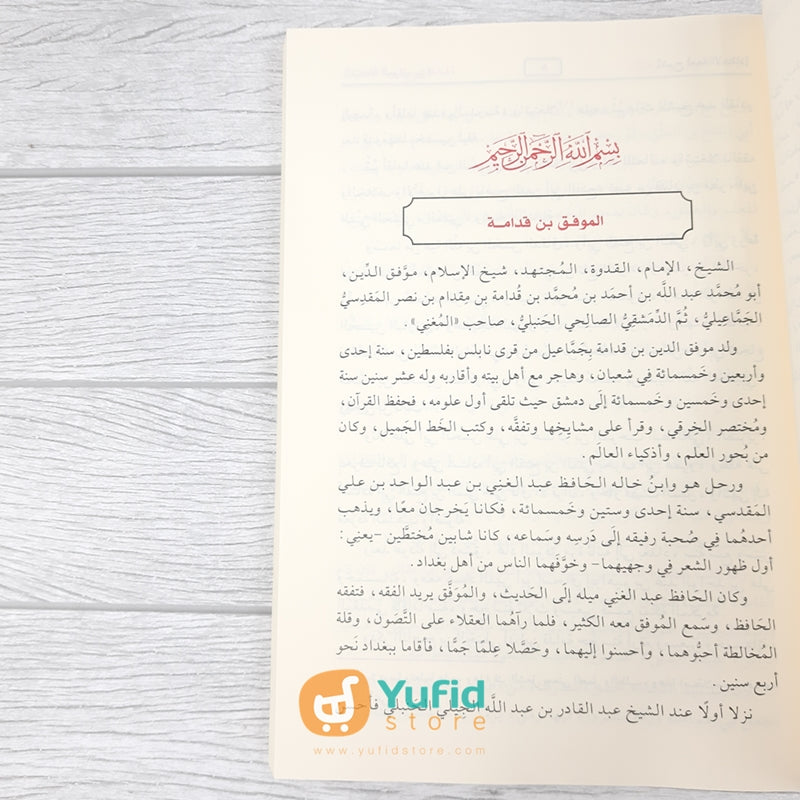 بسم الله الرحمن الرحيم
الموفق بن قدامة
الشيخ، الإمام، القدوة، المُجتهد، شيخ الإسلام، موَّفق الدِّين،
أبو مُحمَّد عبد اللَّه بن أحمَد بن مُحمَّد بن قُدامة بن مِقدام بن نصر المَقدِسيُّ
الجَمَّاعِيليُّ، ثُمَّ الدِّمَشقِيُّ الصالِحي الحَنبليُّ، صاحب «المُغنِي».
ولد موفق الدين بن قدامة بِجَمَّاعيل من قرى نابلس بفلسطين، سنة إحدى
وأربعين وخَمسمائة فِي شعبان، وهاجر مع أهل بيته وأقاربه وله عشر سنين سنة
إحدى وخَمسين وخَمسمائة إلَى دمشق حيث تلقى أول علومه، فحفظ القرآن،
ومُختصر الخِرقي، وقرأ على مشايِخِها وتفقَّه، وكتب الخَط الجَميل، وكان
من بُحور العلم، وأذكياء العالَم.
ورحل هو وابنُ خاله الحَافظ عبد الغَنِي بن عبد الواحد بن علي
المَقدسي، سنة إحدى وستين وخَمسمائة، فكانا يَخرجان معًا، ويذهب
أحدهُما فِي صُحبة رفيقه إلَى دَرسِه وسَماعه، كانا شابين مُختطَّين -يعنِي:
أول ظهور الشعر فِي وجهيهما- وخوَّفَهما الناس من أهل بَغداد.
وكان الحَافظ عبد الغَنِي ميله إلَى الحَديث، والمُوَفَّق يريد الفقه، فتفقه
الحَافظ، وسَمع المُوفق معه الكثير، فلما رآهُما العقلاء على التَّصَون، وقلة
المُخالطة أحبُّوهما، وأحسنوا إليهما، وحَصَّلا عِلمًا جَمًّا، فأقاما ببغداد نَحو
أربع سنين.
نزلا أولًا عند الشيخ عبد القادر بن عبد اللَّه الجِيلي الحَنبلي فأحسن
Yufid
store
www.yufidstore.com